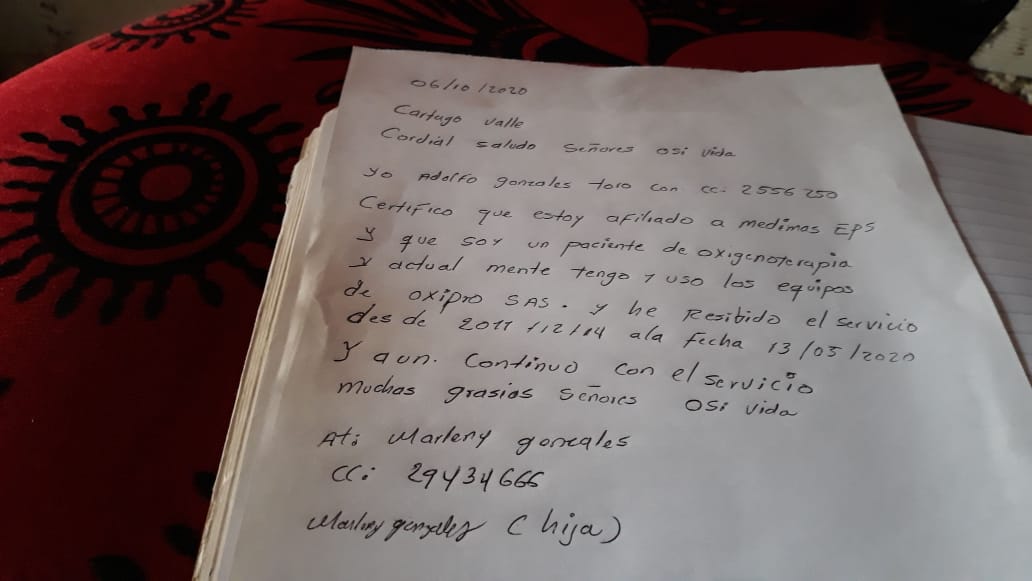 06/10/2020
Cartago Valle
Cordial saludo Señores osi vida
yo Adolfo gonzales toro con cc. 2556250
Certifico que estoy afiliado a medimas EPS
y que soy un paciente de oxigenoterapia
y actual mente tengo y uso los equipos
de oxipro SAS. y he Resibido el servicio
des de 2011/12/04 ala fecha 13/05/2020
y aun. Continuo con el servicio
muchas grasias Señores osi vida
At: Marleny gonzales
CC: 29434666
Marleny gonzalez (hija)